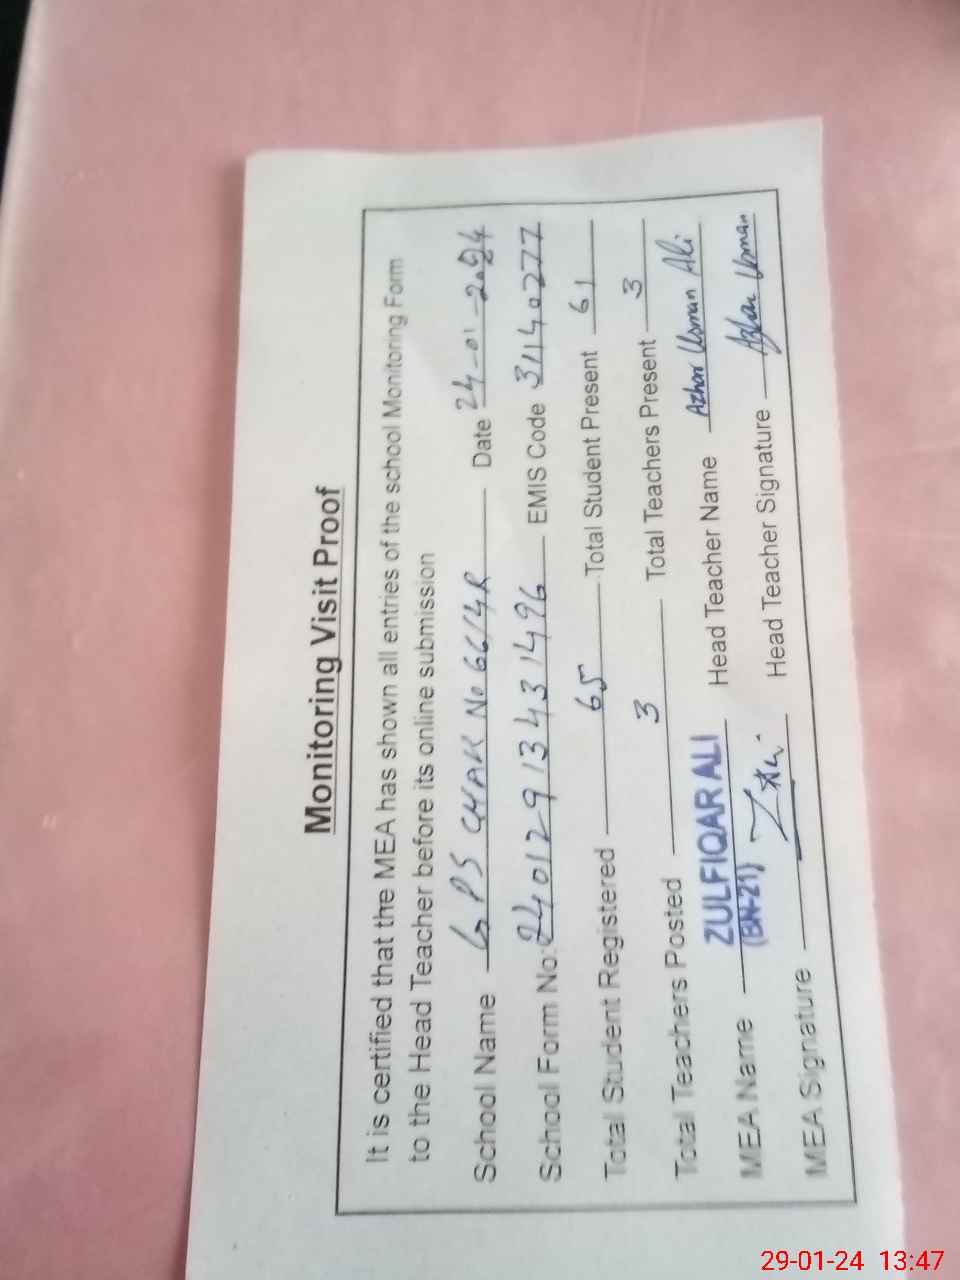 Monitoring Visit Proof
It is certified that the MEA has shown all entries of the school Monitoring Form
to the Head Teacher before its online submission
School Name GPS CHAK No 66/4R Date 24-01-2024
School Form No: 24012913431496 EMIS Code 31140277
Total Student Registered 65 Total Student Present 61
Total Teachers Posted 3 Total Teachers Present 3
MEA Name ZULFIQAR ALI (BN-21) Head Teacher Name Azhar Usman Ali
MEA Signature Head Teacher Signature Azhar Usman
29-01-24 13:47